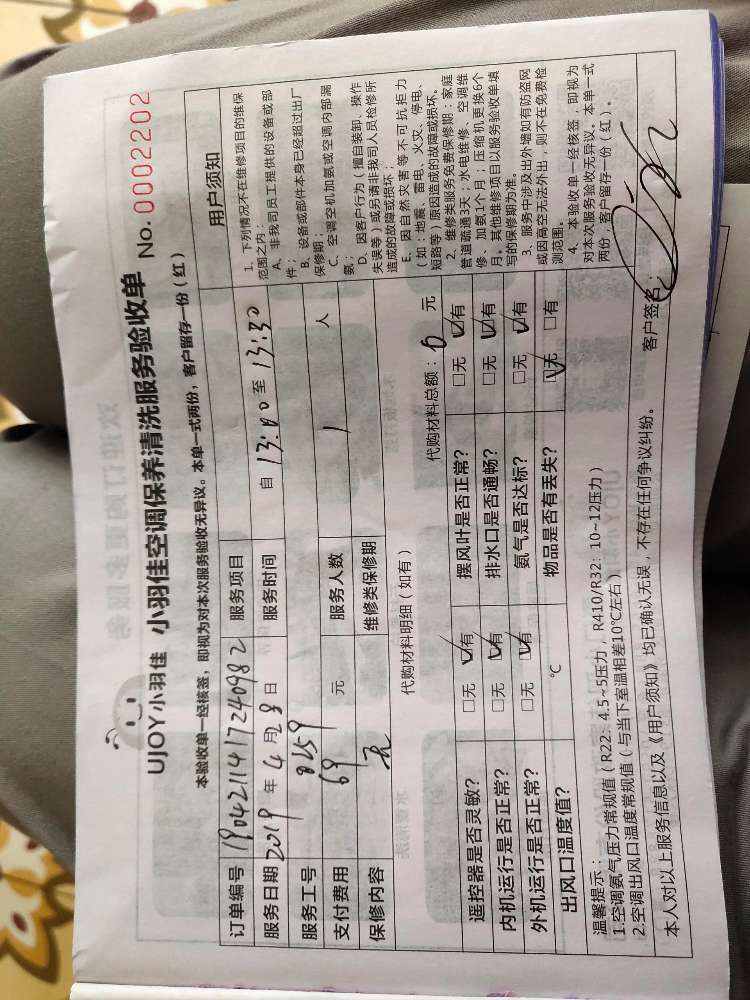 UJOY小羽佳 小羽佳空调保养清洗服务验收单 No. 0002202
本验收单一经核签，即视为对本次服务验收无异议。本单一式两份，客户留存一份（红）
订单编号 1904211417240982 服务项目
服务日期 2019 年 4 月 28 日 服务时间 自 13:00 至 13:30
服务工号 8259
支付费用 69 元 服务人数 1 人
保修内容 无 维修类保修期
代购材料明细（如有） 代购材料总额：0 元
遥控器是否灵敏？ □无 ☑有 摆风叶是否正常？ □无 ☑有
内机运行是否正常？ □无 ☑有 排水口是否通畅？ □无 ☑有
外机运行是否正常？ □无 ☑有 氨气是否达标？ □无 ☑有
出风口温度值？ ℃ 物品是否有丢失？ ☑无 □有
温馨提示：
1.空调氨气压力常规值（R22：4.5~5压力，R410/R32：10~12压力）
2.空调出风口温度常规值（与当下室温相差10℃左右）
本人对以上服务信息以及《用户须知》均已确认无误，不存在任何争议纠纷。 客户签名：
用户须知
1、下列情况不在维修项目的维保
范围之内：
A、非我司员工提供的设备或部
件；
B、设备或部件本身已经超过出厂
保修期；
C、空调空机加氨或空调内部漏
氨；
D、因客户行为（擅自装卸、操作
失误等）或另请非我司人员检修所
造成的故障或损坏；
E、因自然灾害等不可抗拒力
（如地震、雷电、火灾、停电、
短路等）原因造成的故障或损坏。
2、维修类服务免费保修期：家庭
管道疏通3天；水电维修、空调维
修、加氨1个月；压缩机更换6个
月。其他维修项目以服务验收单填
写的保修期为准。
3、服务中涉及出外墙如有防盗网
或因高空无法外出，则不在免费检
测范围。
4、本验收单一经核签，即视为
对本次服务验收无异议。本单一式
两份，客户留存一份（红）。